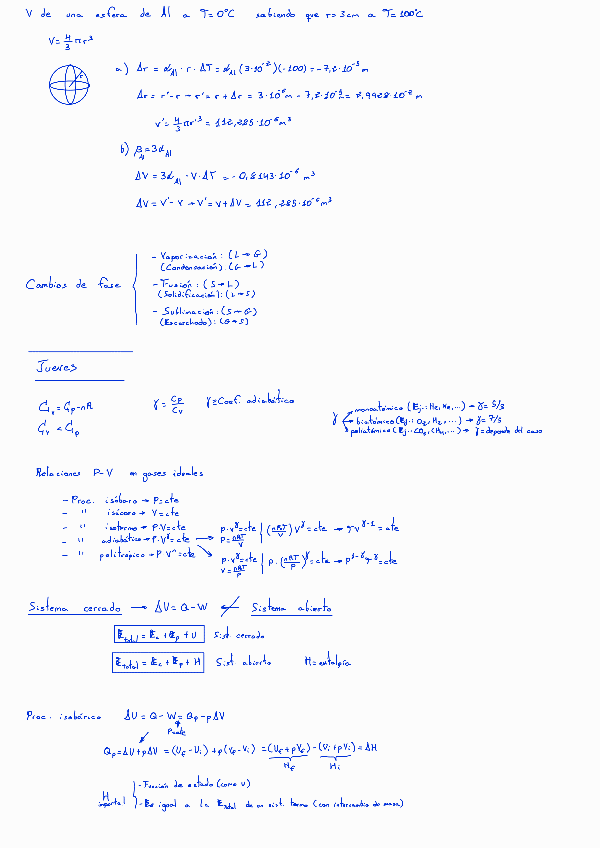 V de una esfera de Al a T=0°C sabiendo que r=3cm a T=100°C
V=4/3 πr³
a) Δr = α_Al · r · ΔT = α_Al (3·10⁻²)(-100) = -7,2·10⁻⁵ m
Δr = r'-r → r' = r + Δr = 3·10⁻² - 7,2·10⁻⁵ = 2,9928·10⁻² m
V' = 4/3 πr'³ = 112,285·10⁻⁶ m³
b) β_Al = 3α_Al
ΔV = 3α_Al · V·ΔT = -0,8143·10⁻⁶ m³
ΔV = V'-V → V' = V+ΔV = 112,285·10⁻⁶ m³
Cambios de fase
- Vaporización: (L→G)
(Condensación): (G→L)
- Fusión: (S→L)
(Solidificación): (L→S)
- Sublimación: (S→G)
(Escarchado): (G→S)
Jueves
C_v = C_p - nR
C_v < C_p
γ = C_p/C_v γ=Coef. adiabático
γ
monoatómico (Ej.: He, Ne,...) → γ = 5/3
biatómico (Ej.: O₂, H₂,...) → γ = 7/5
poliatómico (Ej.: CO₂, CH₄,...) → γ=depende del caso
Relaciones P-V en gases ideales
- Proc. isóbaro → P=cte
- " isócoro → V=cte
- " isotermo → P·V=cte
- " adiabático → P·V^γ=cte
- " politrópico → P·V^n=cte
P·V^γ=cte
P=nRT/V
(nRT/V) V^γ = cte → TV^(γ-1) = cte
P·V^γ=cte
V=nRT/P
P·(nRT/P)^γ = cte → P^(1-γ)T^γ = cte
Sistema cerrado → ΔU = Q-W ← Sistema abierto
E_total = E_c + E_p + U Sist cerrado
E_total = E_c + E_p + H Sist. abierto H=entalpía
Proc. isobárico ΔU = Q - W = Q_p - pΔV
P=cte
Q_p = ΔU + pΔV = (U_f - U_i) + p(V_f - V_i) = (U_f + pV_f) - (U_i + pV_i) = ΔH
H_f H_i
H
importal
- Función de estado (como U)
- Es igual a la E_total de un sist. termo (con intercambio de masa)